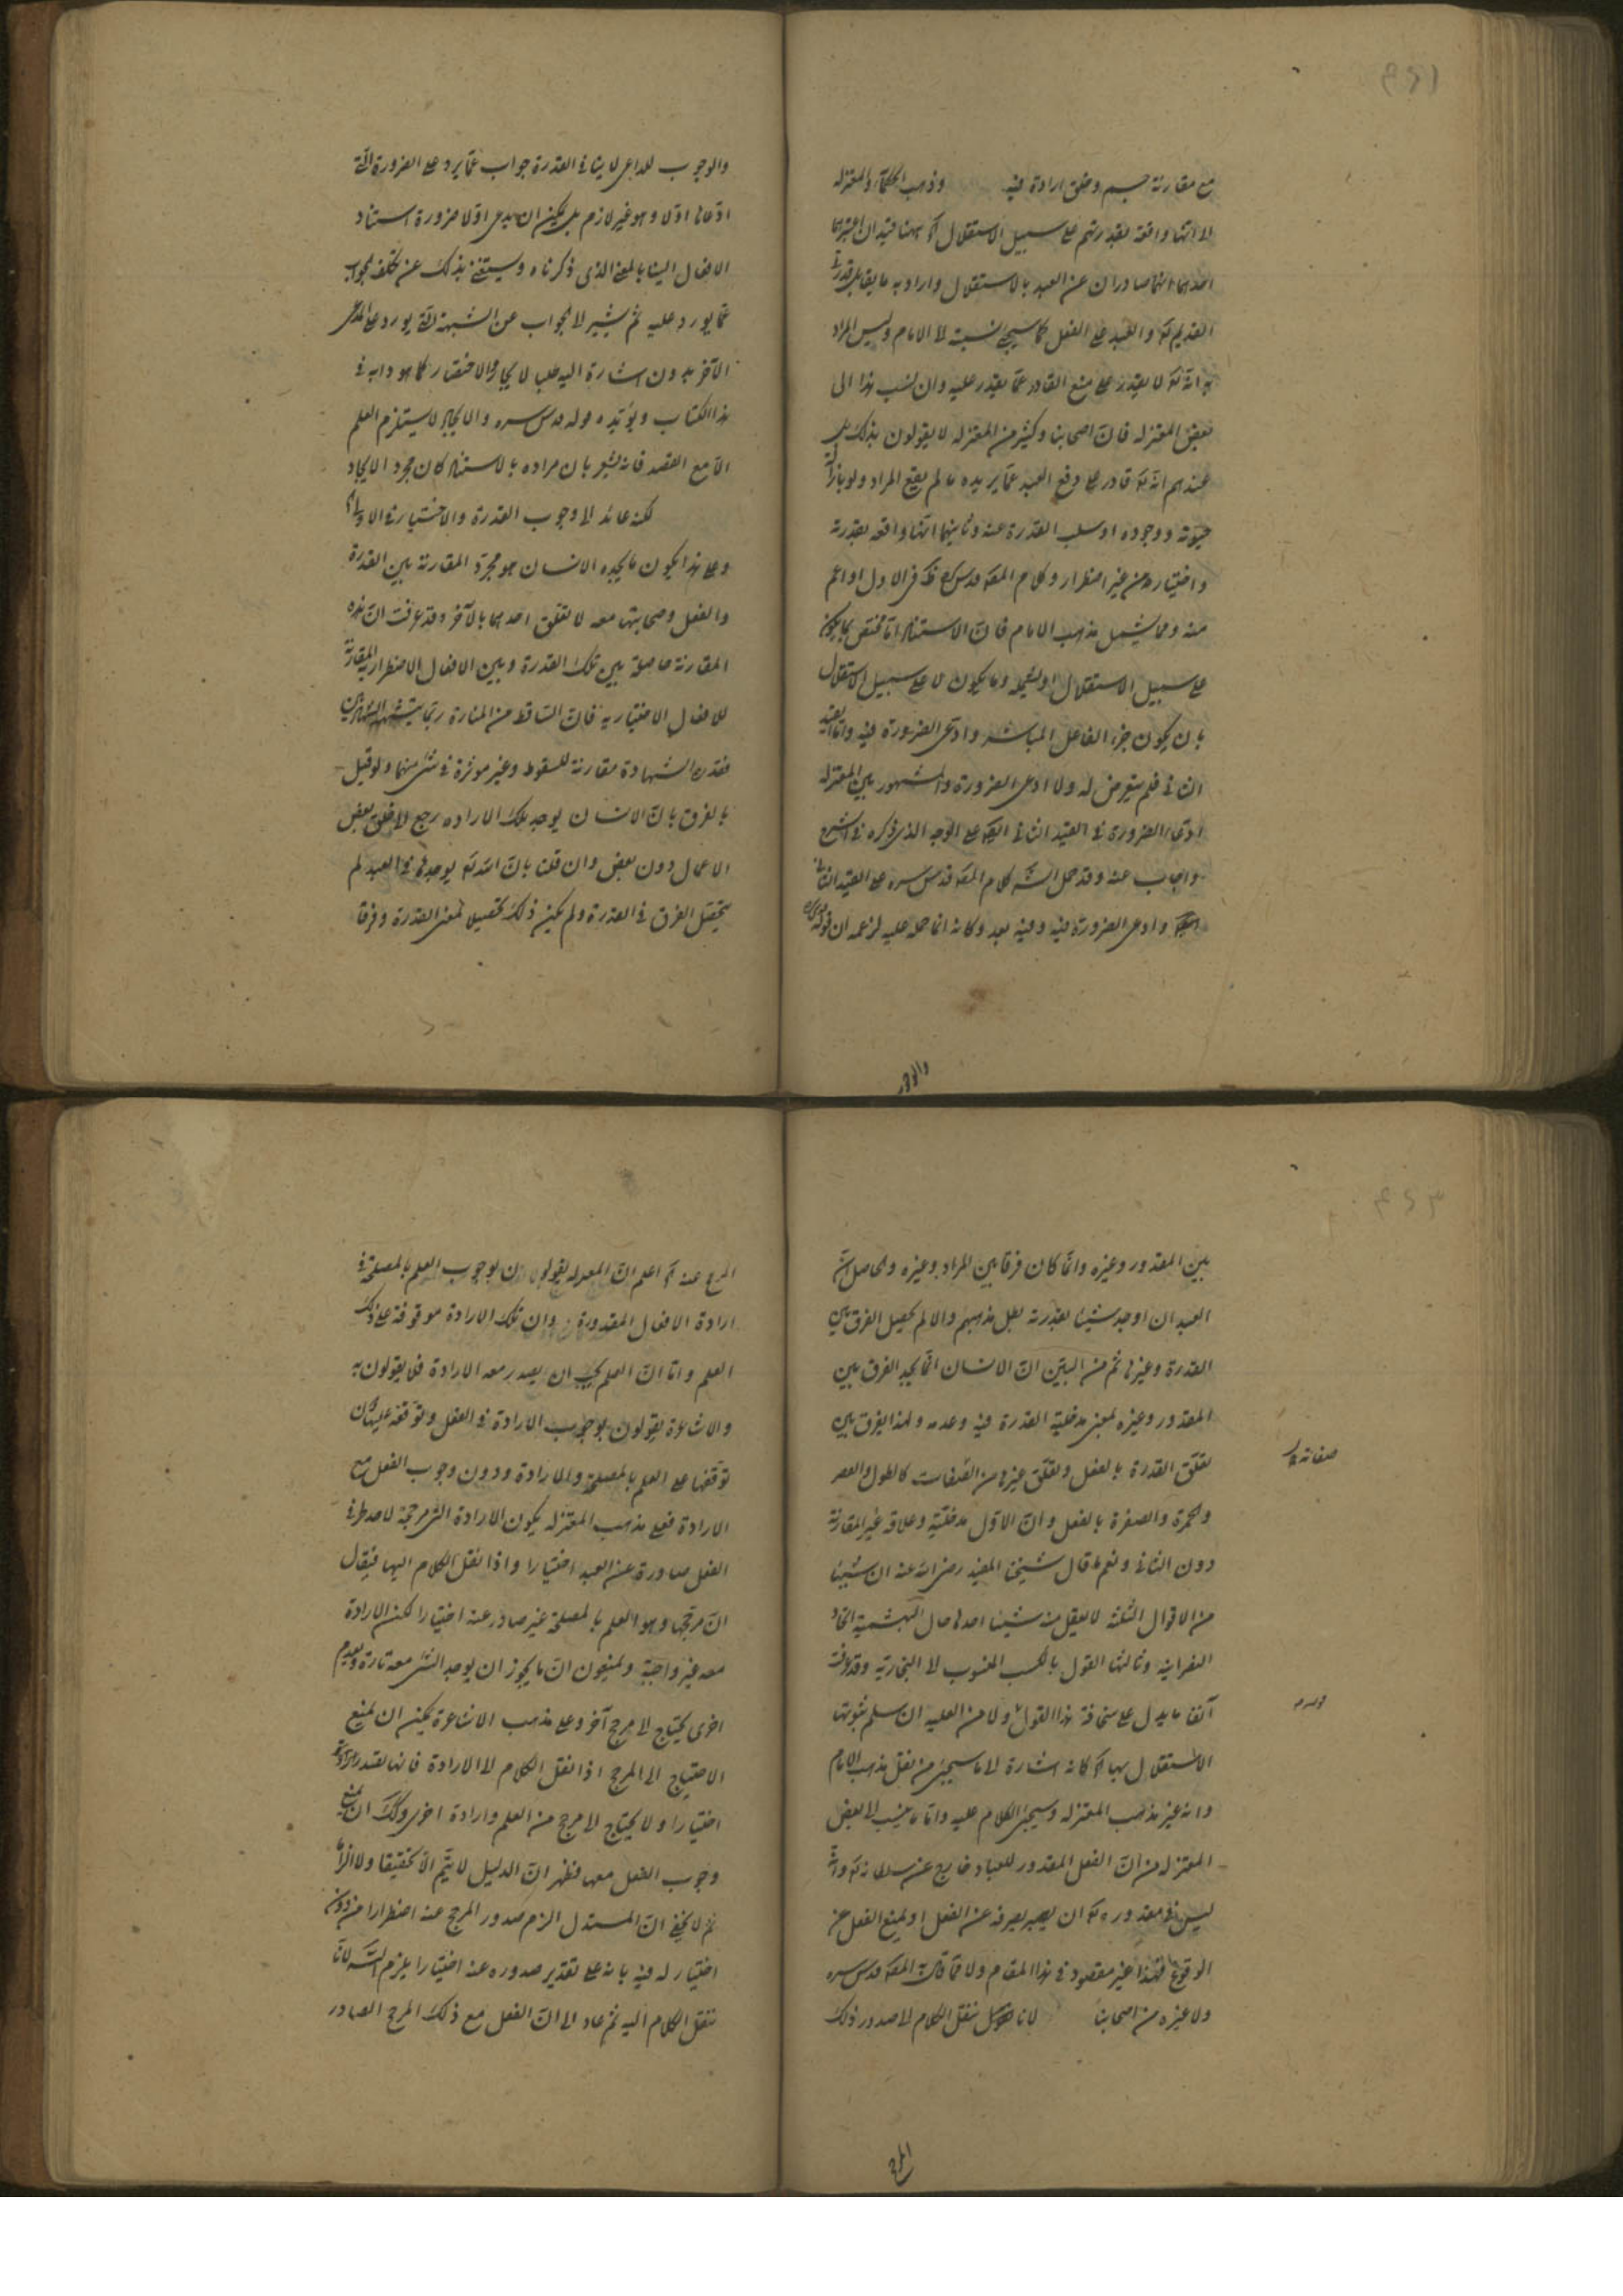 مع مقارنة حسم وخلق ارادة فيه وذهب الحكماء والمعتزلة
الا انها واقعة بقدرتهم على سبيل الاستقلال اه ههنا قيدان اعتبرهما
احدهما انهما صادران عن العبد بالاستقلال واراد به ما يقابل قدرتى
القديم تع والعبد على الفعل كما سيجئ نسبته لا الامام وليس المراد
به انه تع لا يقدر على منع القادر عما يقدر عليه وان نسب هذا الى
بعض المعتزلة فان اصحابنا وكثير من المعتزلة لا يقولون بذلك بل
عندهم انه تع قادر على دفع العبد عما يريده ما لم يقع المراد ولو بازالة
حيوته ووجوده او سلب القدرة عنه وثانيهما انها واقعة بقدرته
واختياره من غير اضطرار وكلام المص قدس سره فى الاول او اعم
منه ومما يشمل مذهب الامام فان الاستناد اما مختص بما يكون
على سبيل الاستقلال او يعمه وما يكون لا على سبيل الاستقلال
بان يكون جزء الفاعل المباشر وادعى الضرورة فيه واما القيد
الثانى فلم يتعرض له ولا ادعى الضرورة والمشهور بين المعتزلة
ادعاء الضرورة فى القيد الثانى ايضا على الوجه الذى ذكره فى الشرح
واجاب عنه وقد حمل الش كلام المص قدس سره على القيد الثانى
ايضا وادعى الضرورة فيه وفيه بعد وكانه انما حمله عليه لزعمه ان قوله
والوجوب
والوجوب للداعى لا ينافى القدرة جواب عما يرد على الضرورة التى
ادعاها اولا وهو غير لازم بل يمكن ان يدعى اولا ضرورة استناد
الافعال الينا بالمعنى الذى ذكرناه ويستغنى بذلك عن تكلف الجواب
عما يورد عليه ثم يشير لا الجواب عن الشبهة التى يورد على المدعى
الآخر بدون اشارة اليه طلبا لايجاز والاختصار كما هو دابه فى
هذا الكتاب ويؤيده قوله قدس سره والايجاد لا يستلزم العلم
الا مع القصد فانه يشعر بان مراده بالاستناد كان مجرد الايجاد
لكنه عائد الى وجوب القدرة والاختيار فى الاول
وعلى هذا يكون ما يجده الانسان هو مجرد المقارنة بين القدرة
والفعل وصحابتها معه لا تعلق احدهما بالآخر وقد عرفت ان هذه
المقارنة حاصلة بين تلك القدرة وبين الافعال الاضطرارية المقارنة
للافعال الاختيارية فان الساقط من المنارة ربما يتشهد الشهادتين
فقدرة الشهادة مقارنة للسقوط وغير موثرة فى شئ منهما ولو قيل
بالفرق بان الانسان يوجد بتلك الارادة رجع الى خلق بعض
الاعمال دون بعض وان قلنا بان الله تع يوجدها فى العبد لم
يتحقق الفرق فى القدرة ولم يكن ذلك تحصيل لمعنى القدرة وفرقا
بين المقدور وغيره وانما كان فرقا بين المراد وغيره والحاصل ان
العبد ان اوجد شيئا بقدرته بطل مذهبهم والا لم يحصل الفرق بين
القدرة وغيرها ثم من البين ان الانسان انما يجد الفرق بين
المقدور وغيره بمعنى مدخلية القدرة فيه وعدمه ولهذا يفرق بين
تعلق القدرة بالفعل وتعلق غيرها من الصفات كالطول والقصر
والحمرة والصفرة بالفعل وان الاول مدخلية وعلاقة غير المقارنة
دون الثانى ونعم ما قال شيخنا المفيد رضى الله عنه ان شيئا
من الاقوال الثلثة لا يعقل منه شيئا احدها حال البهشمية اتحاد
النصرانية وثالثها القول بالكسب المنسوب لا النجارية وقد عرفت
آنفا ما يدل على سخافة هذا القول ولا من العلية ان سلم ثبوتها
الاستقلال بها اه كانه اشارة الى ما سيجئ من نقل مذهب الامام
وانه غير مذهب المعتزلة وسيجئ الكلام عليه واما ما ينسب لا بعض
المعتزلة من ان الفعل المقدور للعباد خارج عن سلطانه تع وانه
ليس فى مقدوره تع ان يصير بصرفه عن الفعل او يمنع الفعل عن
الوقوع فهذا غير مقصود فى هذا المقام ولا مما قال به المص قدس سره
ولا غيره من اصحابنا لانا ننقل الكلام لا صدور ذلك
المرجح
المرجح عنه اه اعلم ان المعتزلة يقولون بوجوب العلم بالمصلحة فى
ارادة الافعال المقدورة وان تلك الارادة موقوفة على ذلك
العلم واما ان العلم يجب ان يصدر معه الارادة فلا يقولون به
والاشاعرة يقولون بوجوب الارادة فى الفعل وتوقفه عليها دون
توقفها على العلم بالمصلحة والارادة ودون وجوب الفعل مع
الارادة فعلى مذهب المعتزلة يكون الارادة التى مرجحة لاحد طرفى
الفعل صادرة عن العبد اختيارا واذا نقل الكلام اليها فيقال
ان مرجحها وهو العلم بالمصلحة غير صادر عنه اختيارا لكن الارادة
معه غير واجبة ولمنعون ان ما يجوز ان يوجد الشئ معه تارة ويعدم
اخرى يحتاج لا مرجح آخر وعلى مذهب الاشاعرة يمكن ان يمنع
الاحتياج الى المرجح اذا نقل الكلام لا الارادة فانها بقدر
اختيارا ولا يحتاج الى مرجح من العلم وارادة اخرى ولك ان تمنع
وجوب الفعل معها فظهر ان الدليل لا يتم الا تحقيقا ولا الزاما
ثم لا يخفى ان المستدل الزم صدور المرجح عنه اضطرارا من دون
اختيار له فيه بانه على تقدير صدوره عنه اختيارا يلزم التس لانا
ننقل الكلام اليه ثم عاد الى ان الفعل مع ذلك المرجح الصادر